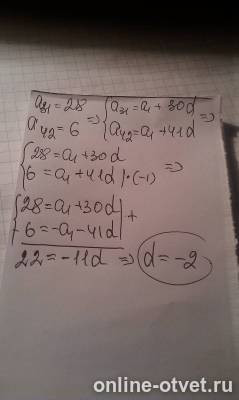 a₃₁ = 28 ⇒ { a₃₁ = a₁ + 30d ⇒
a₄₂ = 6 { a₄₂ = a₁ + 41d
{ 28 = a₁ + 30d
{ 6 = a₁ + 41d | · (-1) ⇒
{ 28 = a₁ + 30d | +
{ -6 = -a₁ - 41d |
22 = -11d ⇒ d = -2
online-otvet.ru